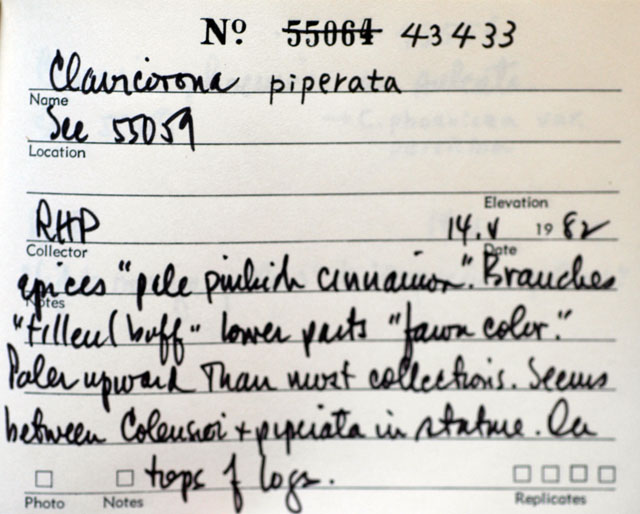 Nº 55064 43433
Clavicorona piperata
Name
See 55059
Location
Elevation
RHP 14.V 1982
Collector Date
apices "pale pinkish cinnamon". Branches
Notes
"tilleul buff" lower parts "fawn color."
Paler upward than most collections. Seems
between Colensoi + piperata in stature. On
tops of logs.
Photo Notes Replicates